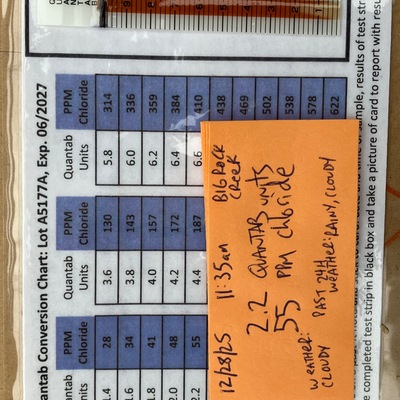 antab Conversion Chart: Lot A5177A, Exp. 06/2027
antab PPM Quantab PPM Quantab PPM
Units Chloride Units Chloride Units Chloride
1.4 28 3.6 130 5.8 314
1.6 34 3.8 143 6.0 336
1.8 41 4.0 157 6.2 359
2.0 48 4.2 172 6.4 384
2.2 55 4.4 187 6.6 410
438
469
502
538
578
622
12/28/25 11:35am BIG ROCK
CREEK
2.2 QUANTAB UNITS
55 PPM chloride
WEATHER: PAST 24H
CLOUDY WEATHER: RAINY, CLOUDY
sample, results of test stri
e completed test strip in black box and take a picture of card to report with resu
9 8 7 6 5 4 3 2 1